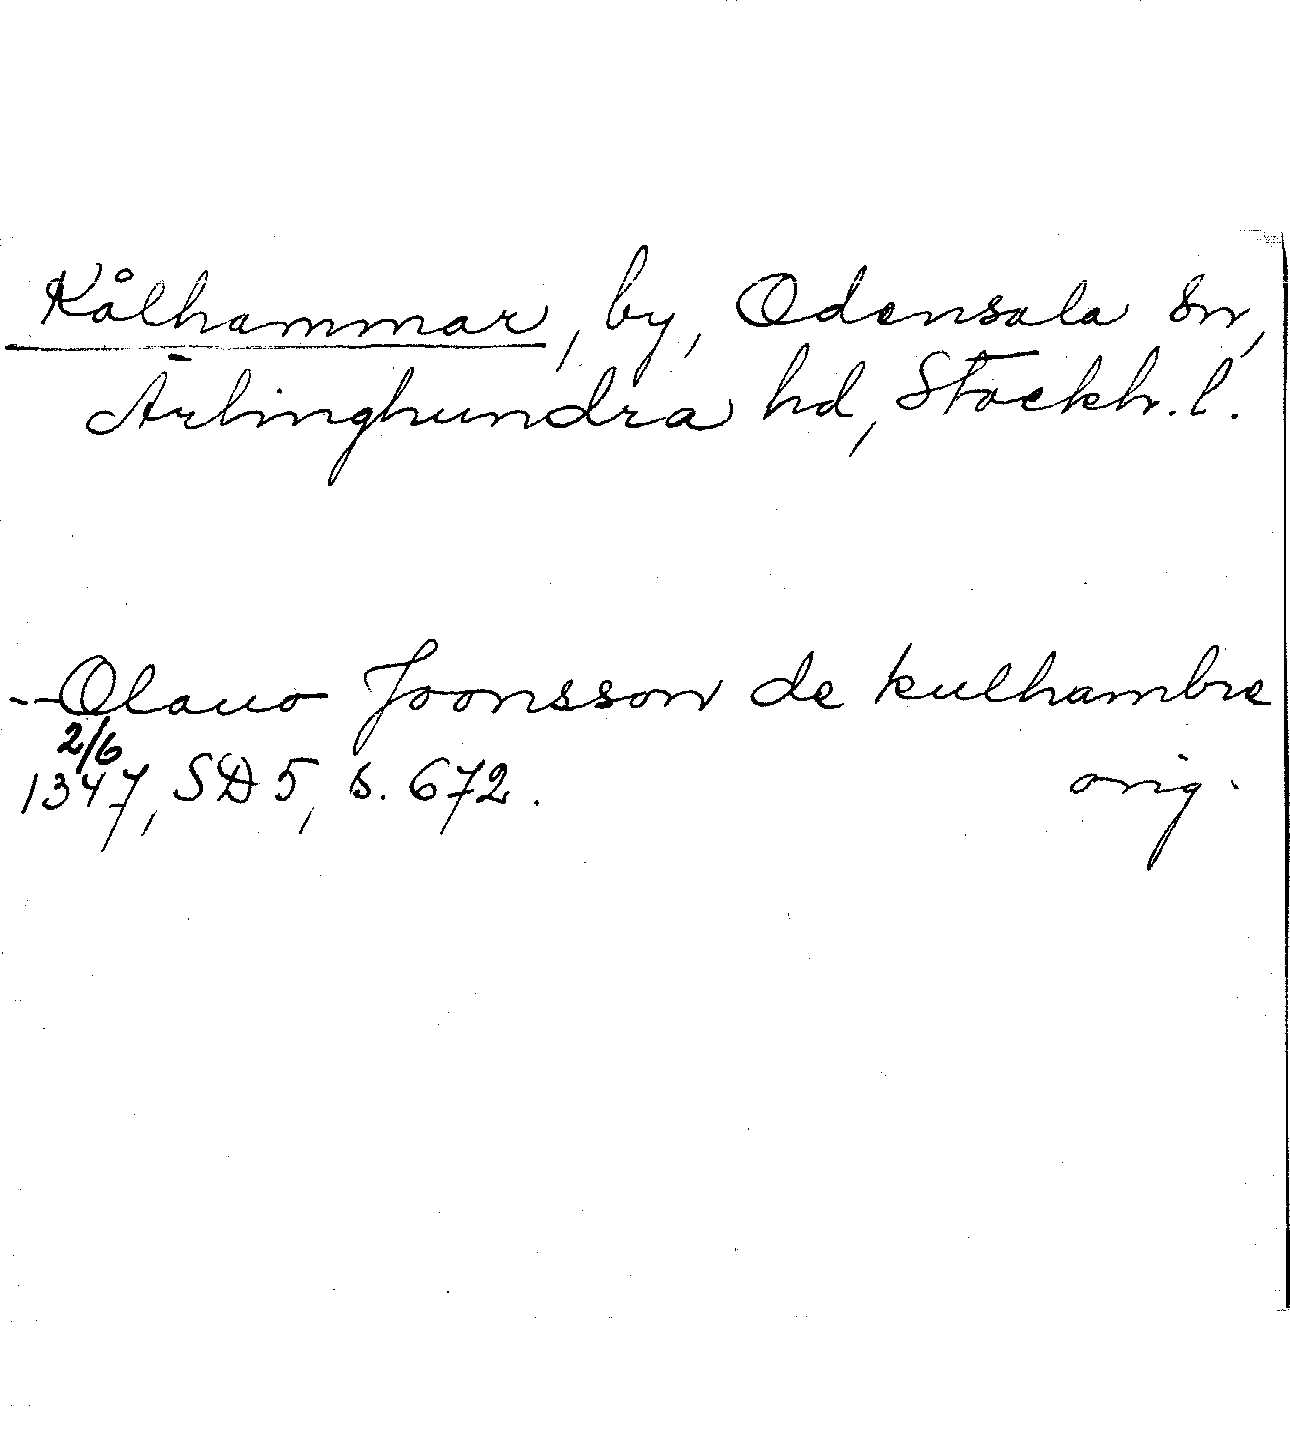 Kålhammar, by, Odensala sn,
Ärlinghundra hd, Stockh. l.
--Olauo Joonsson de kulhambre
2/6
1347, SD 5, s. 672. orig.